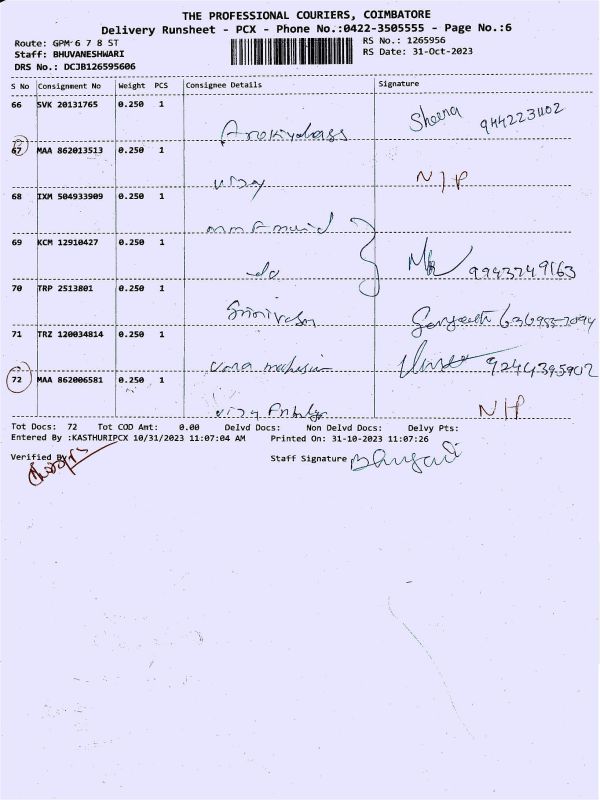 THE PROFESSIONAL COURIERS, COIMBATORE
Delivery Runsheet - PCX - Phone No.:0422-3505555 - Page No.:6
Route: GPM 6 7 8 ST
RS No.: 1265956
Staff: BHUVANESHWARI
RS Date: 31-Oct-2023
DRS No.: DCJB126595606
S No Consignment No Weight PCS Consignee Details Signature
66 SVK 20131765 0.250 1
Sheena 9442231102
67 MAA 862013513 0.250 1
Vijay N/P
68 IXM 504933909 0.250 1
69 KCM 12910427 0.250 1
do 9943249163
70 TRP 2513801 0.250 1
Srinivasan
71 TRZ 120034814 0.250 1
9244395902
72 MAA 862006581 0.250 1
Vijay N/P
Tot Docs: 72 Tot COD Amt: 0.00 Delvd Docs: Non Delvd Docs: Delvy Pts:
Entered By :KASTHURIPCX 10/31/2023 11:07:04 AM Printed On: 31-10-2023 11:07:26
Verified By
Staff Signature